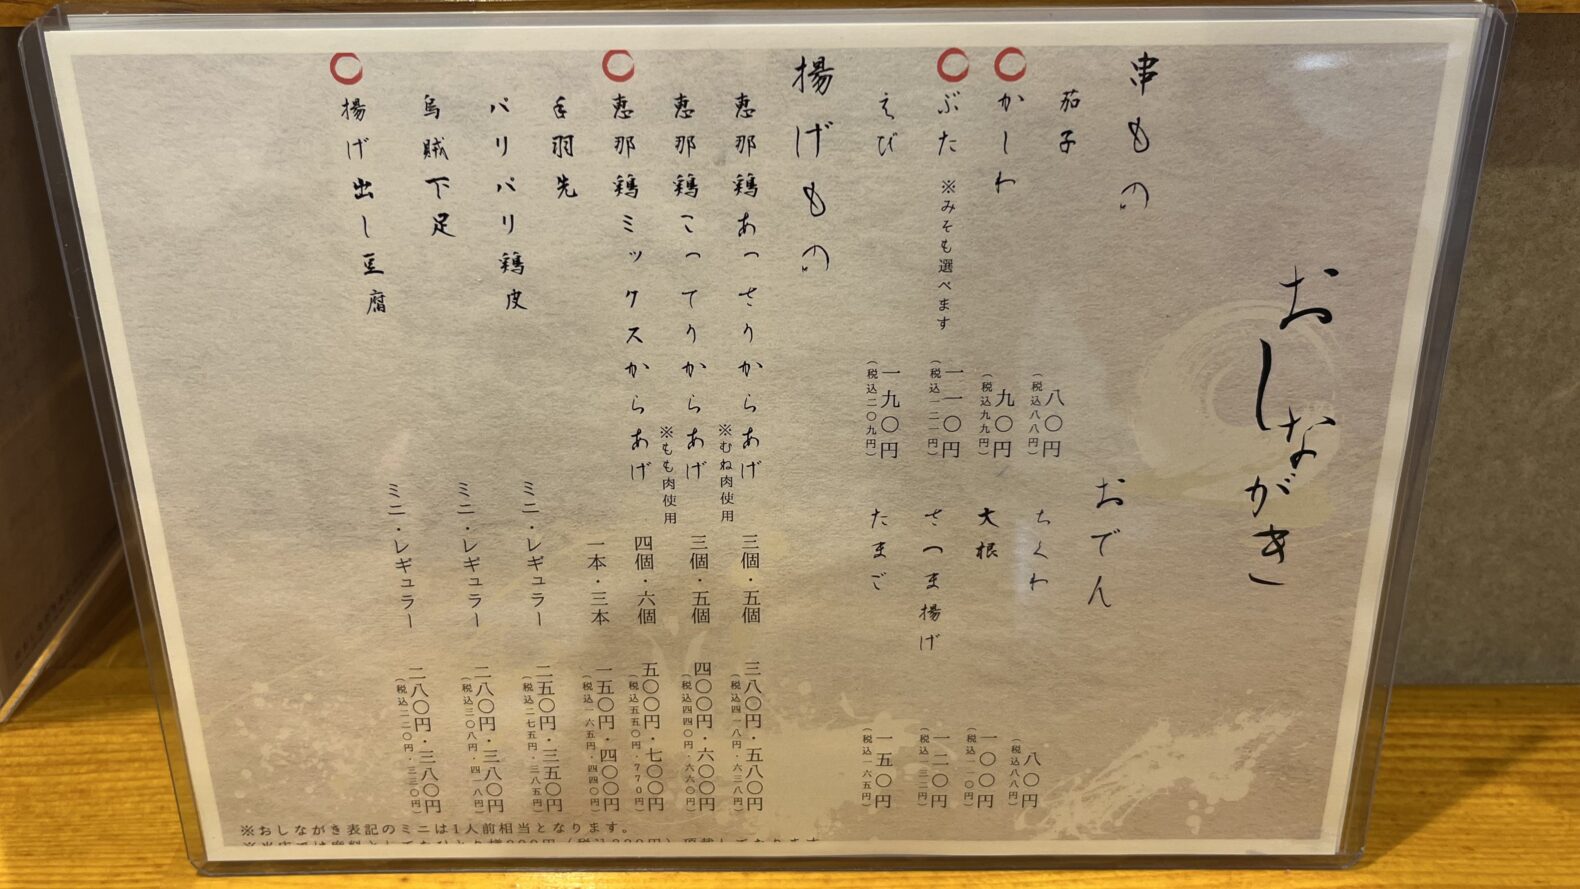 おしながき
串もの
茄子 八〇円 (税込八八円)
かしわ 九〇円 (税込九九円)
ぶた ※みそも選べます 一一〇円 (税込一二一円)
えび 一九〇円 (税込二〇九円)
おでん
ちくわ 八〇円 (税込八八円)
大根 一〇〇円 (税込一一〇円)
さつま揚げ 一二〇円 (税込一三二円)
たまご 一五〇円 (税込一六五円)
揚げもの
恵那鶏あっさりからあげ ※むね肉使用 三個・五個 三八〇円・五八〇円 (税込四一八円・六三八円)
恵那鶏こってりからあげ ※もも肉使用 三個・五個 四〇〇円・六〇〇円 (税込四四〇円・六六〇円)
恵那鶏ミックスからあげ 四個・六個 五〇〇円・七〇〇円 (税込五五〇円・七七〇円)
手羽先 一本・三本 一五〇円・四〇〇円 (税込一六五円・四四〇円)
パリパリ鶏皮 ミニ・レギュラー 二五〇円・三五〇円 (税込二七五円・三八五円)
烏賊下足 ミニ・レギュラー 二八〇円・三八〇円 (税込三〇八円・四一八円)
揚げ出し豆腐 ミニ・レギュラー 二八〇円・三八〇円
※おしながき表記のミニは1人前相当となります。